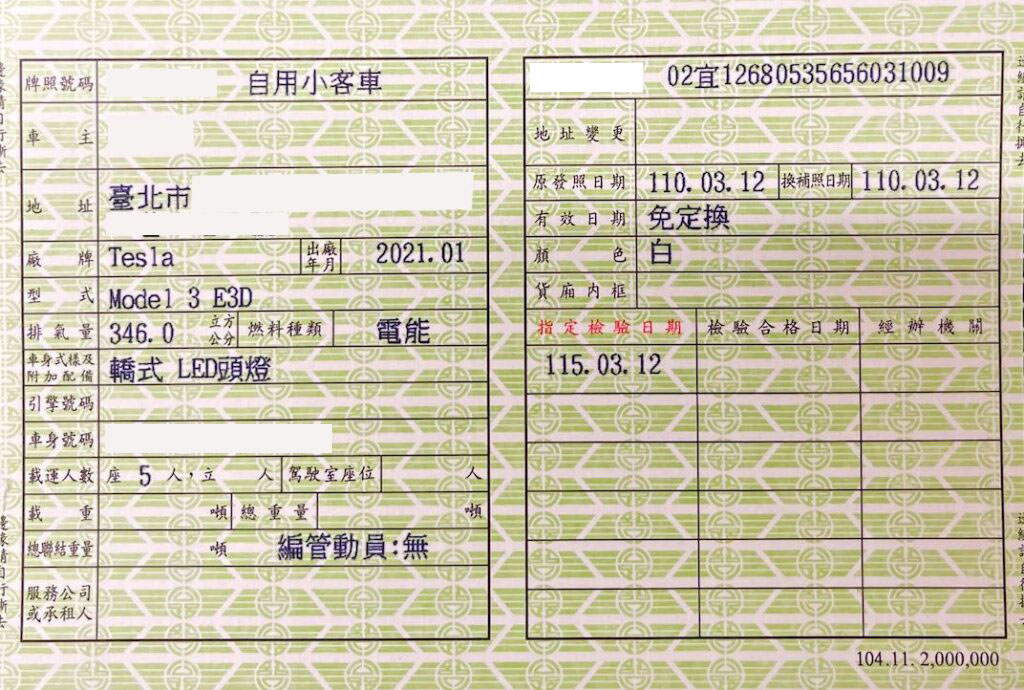 牌照號碼 自用小客車
車主
地址 臺北市
廠牌 Tesla 出廠年月 2021.01
型式 Model 3 E3D
排氣量 346.0 立方公分 燃料種類 電能
車身式樣及附加配備 轎式 LED頭燈
引擎號碼
車身號碼
載運人數 座 5 人，立 人 駕駛室座位 人
載重 噸 總重量 噸
總聯結重量 噸 編管動員:無
服務公司或承租人
02宜12680535656031009
地址變更
原發照日期 110.03.12 換補照日期 110.03.12
有效日期 免定換
顏色 白
貨廂內框
指定檢驗日期 檢驗合格日期 經辦機關
115.03.12
104.11. 2,000,000